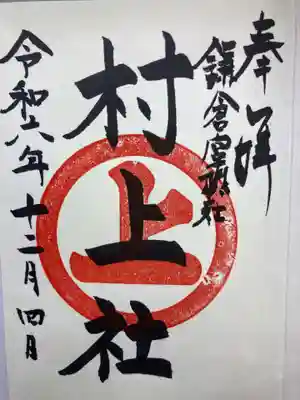 奉拝
鎌倉宮摂社
村上社
令和六年十二月四日
上